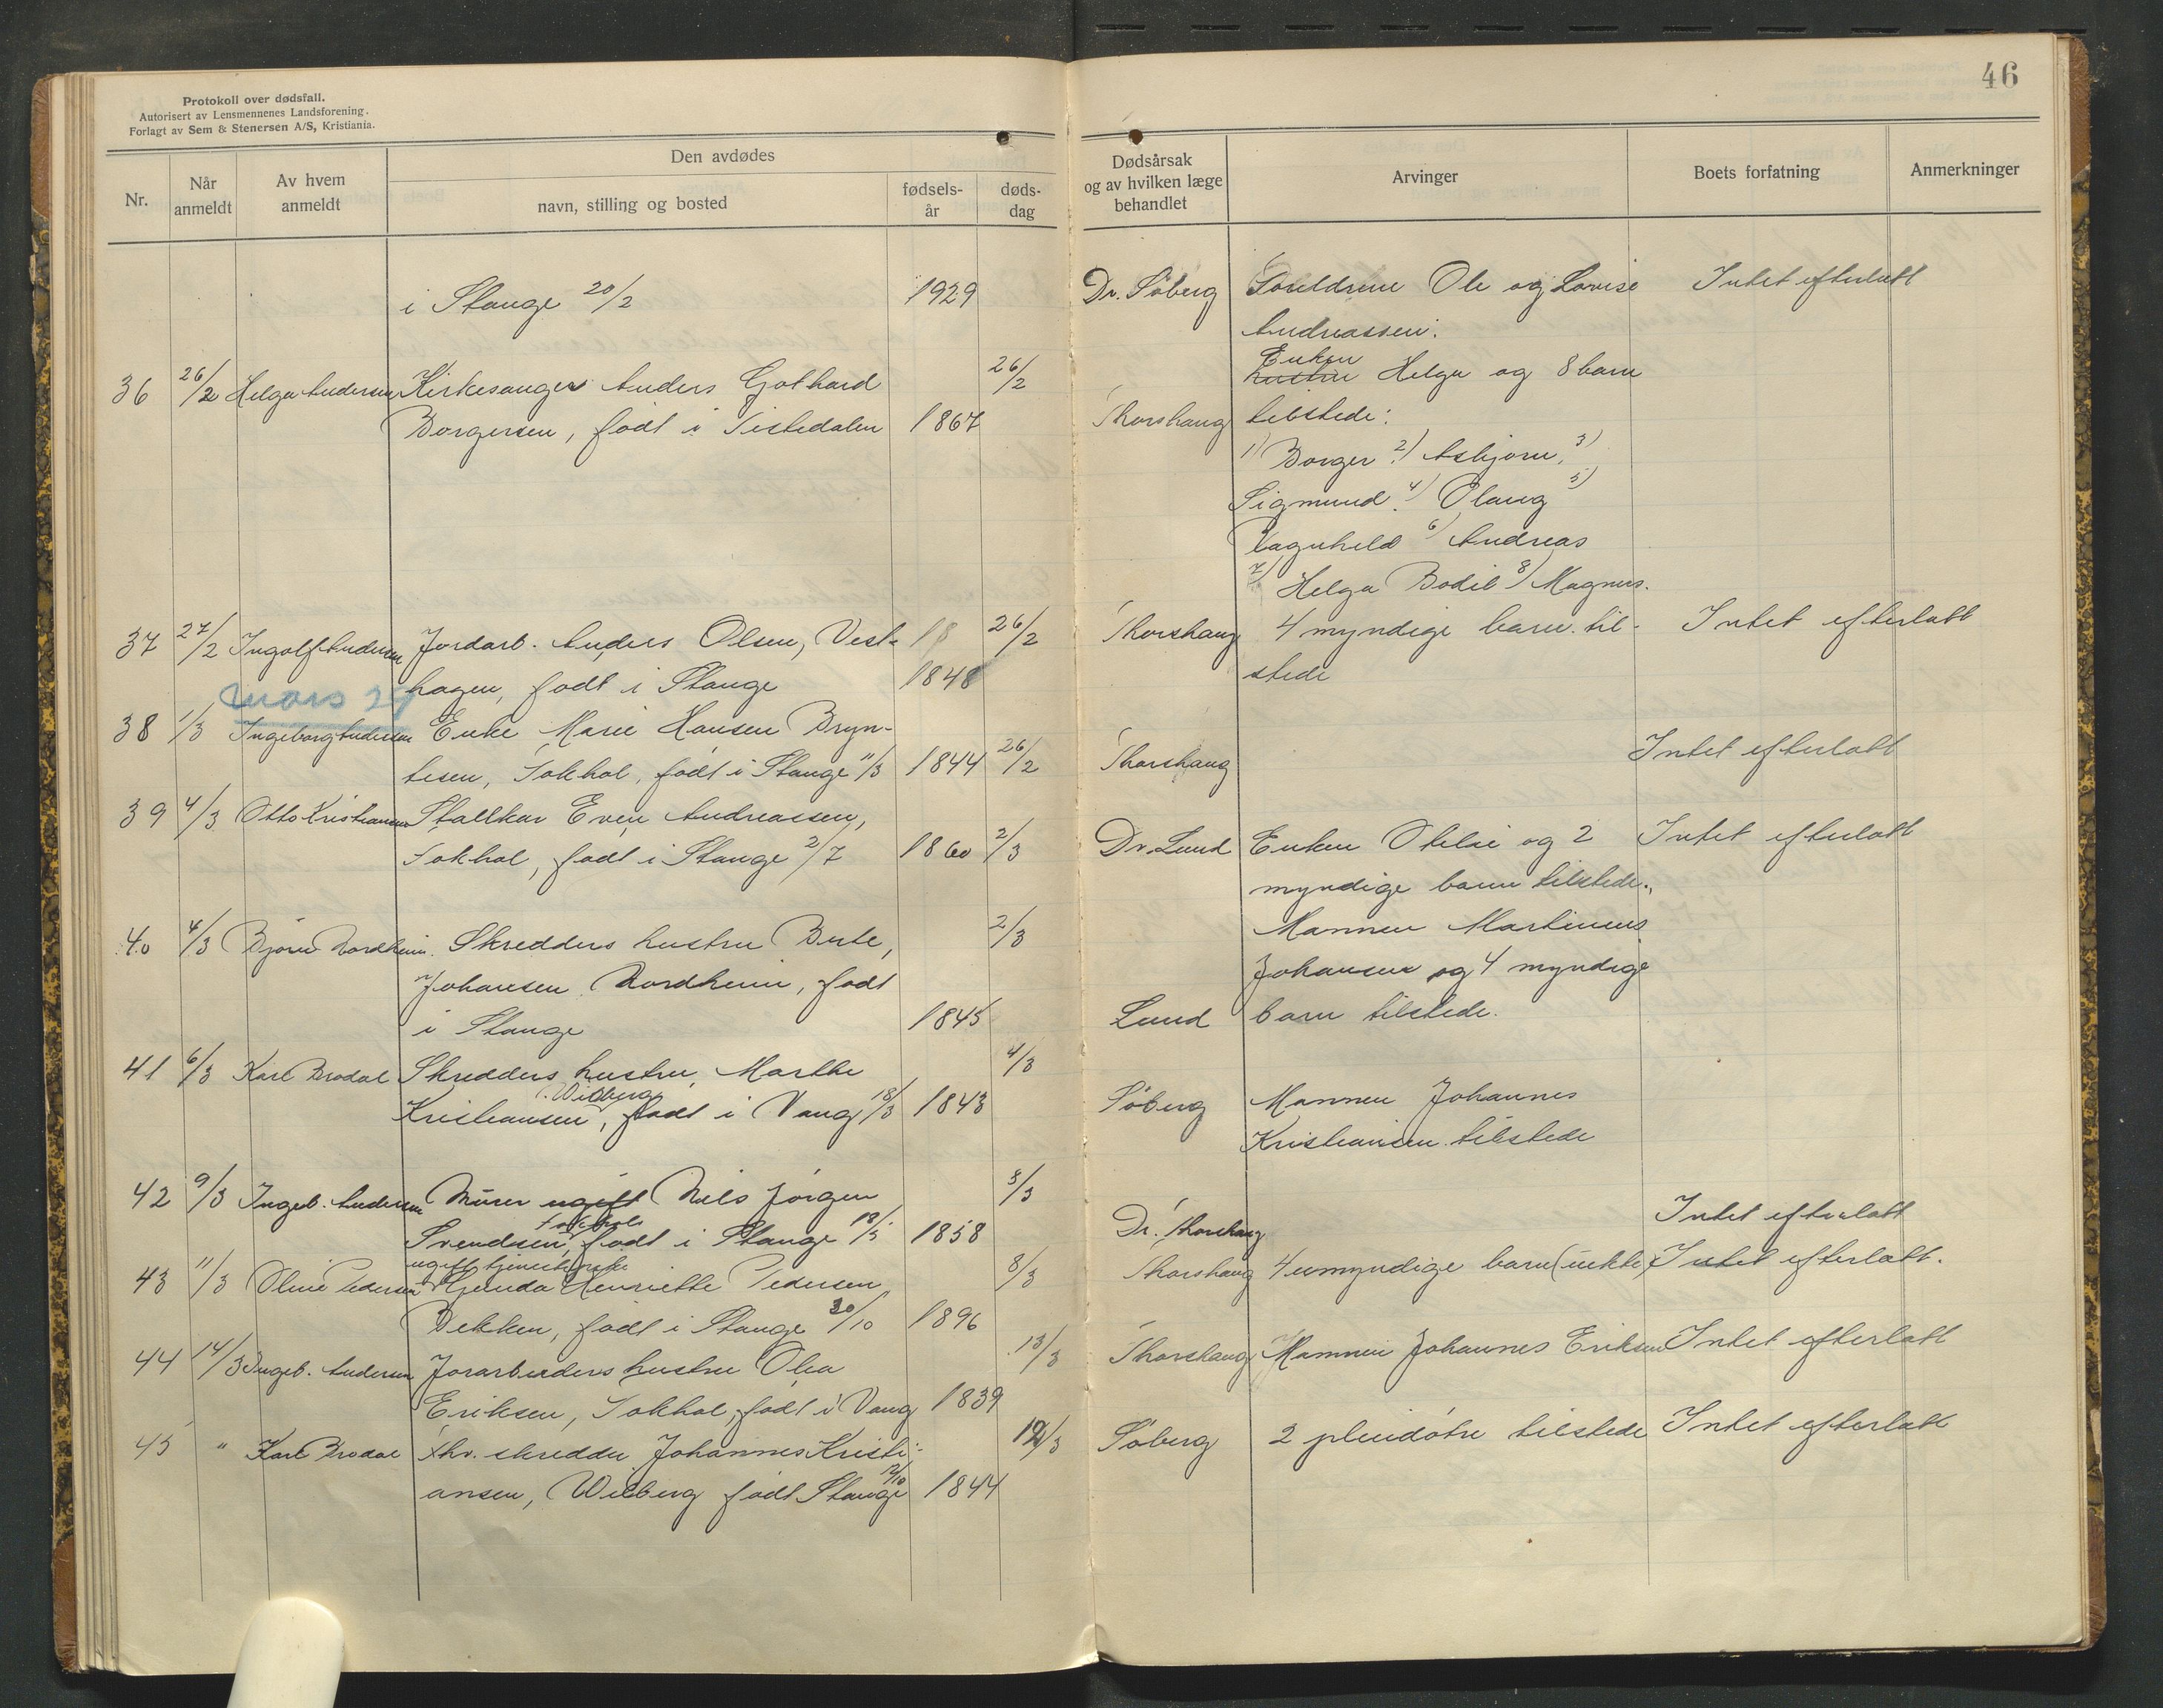 46
Protokoll over dødsfall.
Autorisert av Lensmennenes Landsforening.
Forlagt av Sem & Stenersen A/S, Kristiania.
Nr.
Når anmeldt
Av hvem anmeldt
Den avdødes
navn, stilling og bosted
fødsels-år
døds-dag
Dødsårsak og av hvilken læge behandlet
Arvinger
Boets forfatning
Anmerkninger
i Stange 20/2 1929 Dr. Söberg Foreldrene Ole og Lovise Intet efterlatt
Andreassen.
Enken
36 26/2 Helga Andersen Kirkesanger Anders Gothard 26/2 hustru Helga og 8 barn
Borgersen, født i Tistedalen 1867 Thorshaug tilstede:
1) Borger 2) Asbjørn, 3)
Sigmund 4) Olaug 5)
Ragnhild 6) Andreas
7) Helga Bodil 8) Magnus.
37 27/2 Ingolf Andersen Jordarb. Anders Olsen, Vest- 18 26/2 Thorshaug 4 myndige barn til- Intet efterlatt
hagen, født i Stange 1848 stede
mars 29
38 1/3 Ingeborg Andersen Enke Marie Hansen Bryn-
tesen, Sokhol, født i Stange 11/3 1844 26/2 Thorshaug Intet efterlatt
39 4/3 Otto Kristiansen Stallkar Even Andreassen,
Sokhol, født i Stange 2/7 1860 2/3 Dr. Lund Enken Otelie og 2 Intet efterlatt
myndige barn tilstede.
40 4/3 Bjørn Nordheim. Skredders hustru Berte, 2/3 Mannen Martinius
Johansen Nordheim, født Johansen og 4 myndige
i Stange 1845 Lund barn tilstede.
41 6/3 Karl Brodal Skredders hustru, Marthe 4/3
Wiberg
Kristiansen, født i Vang 18/3 1843 Söberg Mannen Johannes
Kristiansen tilstede
42 9/3 Ingeb. Andersen Murer ugift Nils Jörgen 8/3
Sokhol
Svendsen, født i Stange 18/5 1858 Dr. Thorshaug Intet efterlatt
ugift tjenestepike
43 11/3 Oline Pedersen Henriette Pedersen 8/3 Thorshaug 4 umyndige barn (uekte) Intet efterlatt.
Bekken, født i Stange 30/10 1896
44 14/3 Ingeb. Andersen Jorarbeiders hustru Olea 13/3 Thorshaug Mannen Johannes Eriksen Intet efterlatt
Eriksen, Sokhol, født i Vang 1839
45 " Karl Brodal fhv. skredder Johannes Kristi- 12/3 Söberg 2 pleidøtre tilstede Intet efterlatt
ansen, Wiberg født Stange 12/10 1844